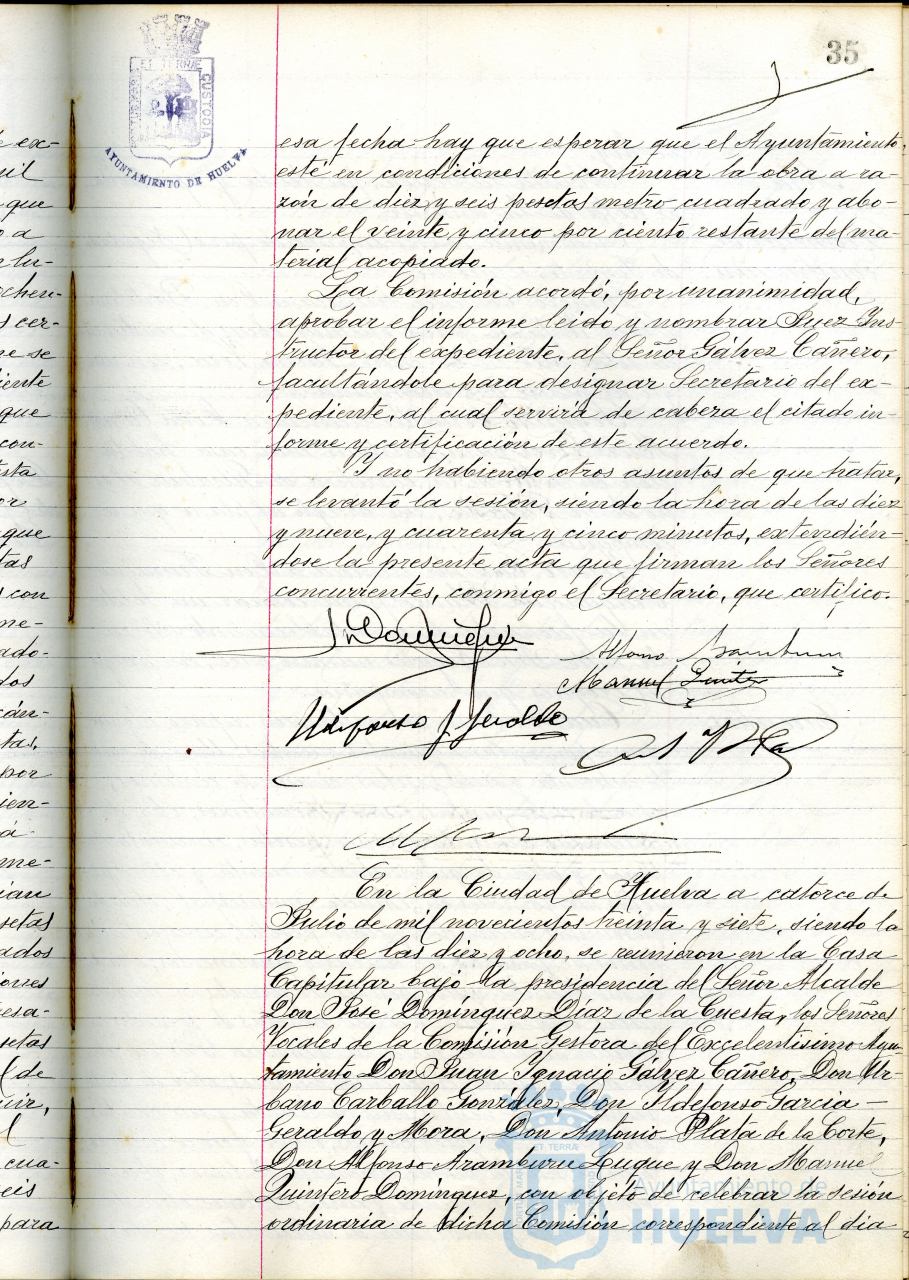 35
ET TERRÆ
CUSTODIA
AYUNTAMIENTO DE HUELVA
esa fecha hay que esperar que el Ayuntamiento
esté en condiciones de continuar la obra a ra-
zón de diez y seis pesetas metro cuadrado y abo-
nar el veinte y cinco por ciento restante del ma-
terial acopiado.
La Comisión acordó, por unanimidad,
aprobar el informe leido y nombrar Juez Ins-
tructor del expediente, al Señor Gálvez Cañero,
facultándole para designar Secretario del ex-
pediente, al cual servirá de cabeza el citado in-
forme y certificación de este acuerdo.
Y no habiendo otros asuntos de que tratar,
se levantó la sesión, siendo la hora de las diez
y nueve, y cuarenta y cinco minutos, extendién-
dose la presente acta que firman los Señores
concurrentes, conmigo el Secretario, que certifico.
Alfonso Aramburu
Manuel Quintero
Ildefonso G. Geraldo
En la Ciudad de Huelva a catorce de
Julio de mil novecientos treinta y siete, siendo la
hora de las diez y ocho, se reunieron en la Casa
Capitular bajo la presidencia del Señor Alcalde
Don José Domínguez Díaz de la Cuesta, los Señores
Vocales de la Comisión Gestora del Excelentisimo Ayun-
tamiento Don Juan Ygnacio Gálvez Cañero, Don Ur-
bano Carballo González, Don Ildefonso Garcia-
Geraldo y Mora, Don Antonio Plata de la Corte,
Don Alfonso Aramburu Luque y Don Manuel
Quintero Domínguez, con objeto de celebrar la sesión
ordinaria de dicha Comisión correspondiente al dia
Ayuntamiento de
HUELVA